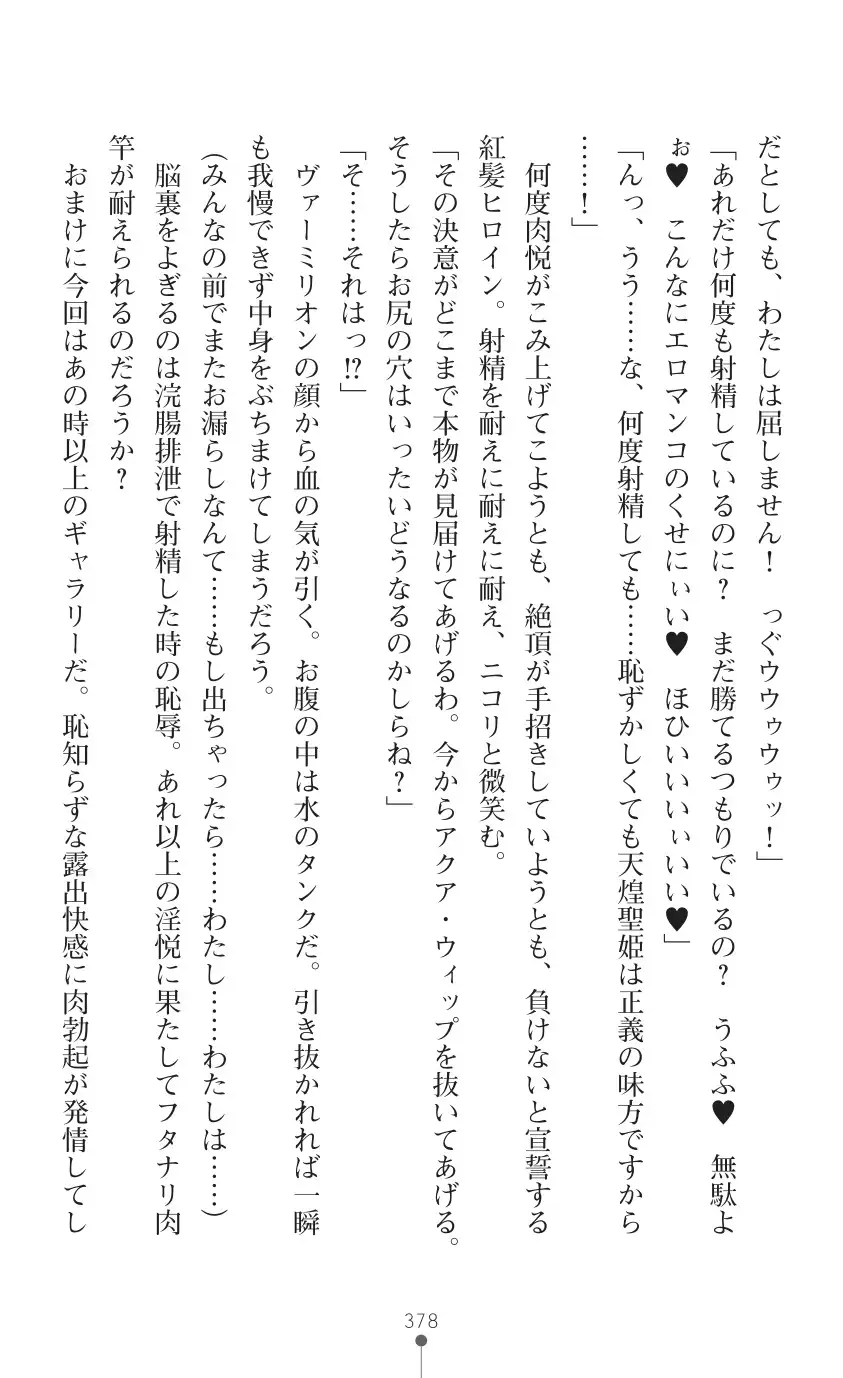 だとしても、わたしは屈しません！　っぐウウゥウゥッ！」
「あれだけ何度も射精しているのに？　まだ勝てるつもりでいるの？　うふふ♥　無駄よ
ぉ♥　こんなにエロマンコのくせにぃい♥　ほひいいいぃいい♥」
「んっ、うう……な、何度射精しても……恥ずかしくても天煌聖姫は正義の味方ですから
……！」
　何度肉悦がこみ上げてこようとも、絶頂が手招きしていようとも、負けないと宣誓する
紅髪ヒロイン。射精を耐えに耐えに耐え、ニコリと微笑む。
「その決意がどこまで本物が見届けてあげるわ。今からアクア・ウィップを抜いてあげる。
そうしたらお尻の穴はいったいどうなるのかしらね？」
「そ……それはっ⁉」
　ヴァーミリオンの顔から血の気が引く。お腹の中は水のタンクだ。引き抜かれれば一瞬
も我慢できず中身をぶちまけてしまうだろう。
（みんなの前でまたお漏らしなんて……もし出ちゃったら……わたし……わたしは……）
　脳裏をよぎるのは浣腸排泄で射精した時の恥辱。あれ以上の淫悦に果たしてフタナリ肉
竿が耐えられるのだろうか？
　おまけに今回はあの時以上のギャラリーだ。恥知らずな露出快感に肉勃起が発情してし
378